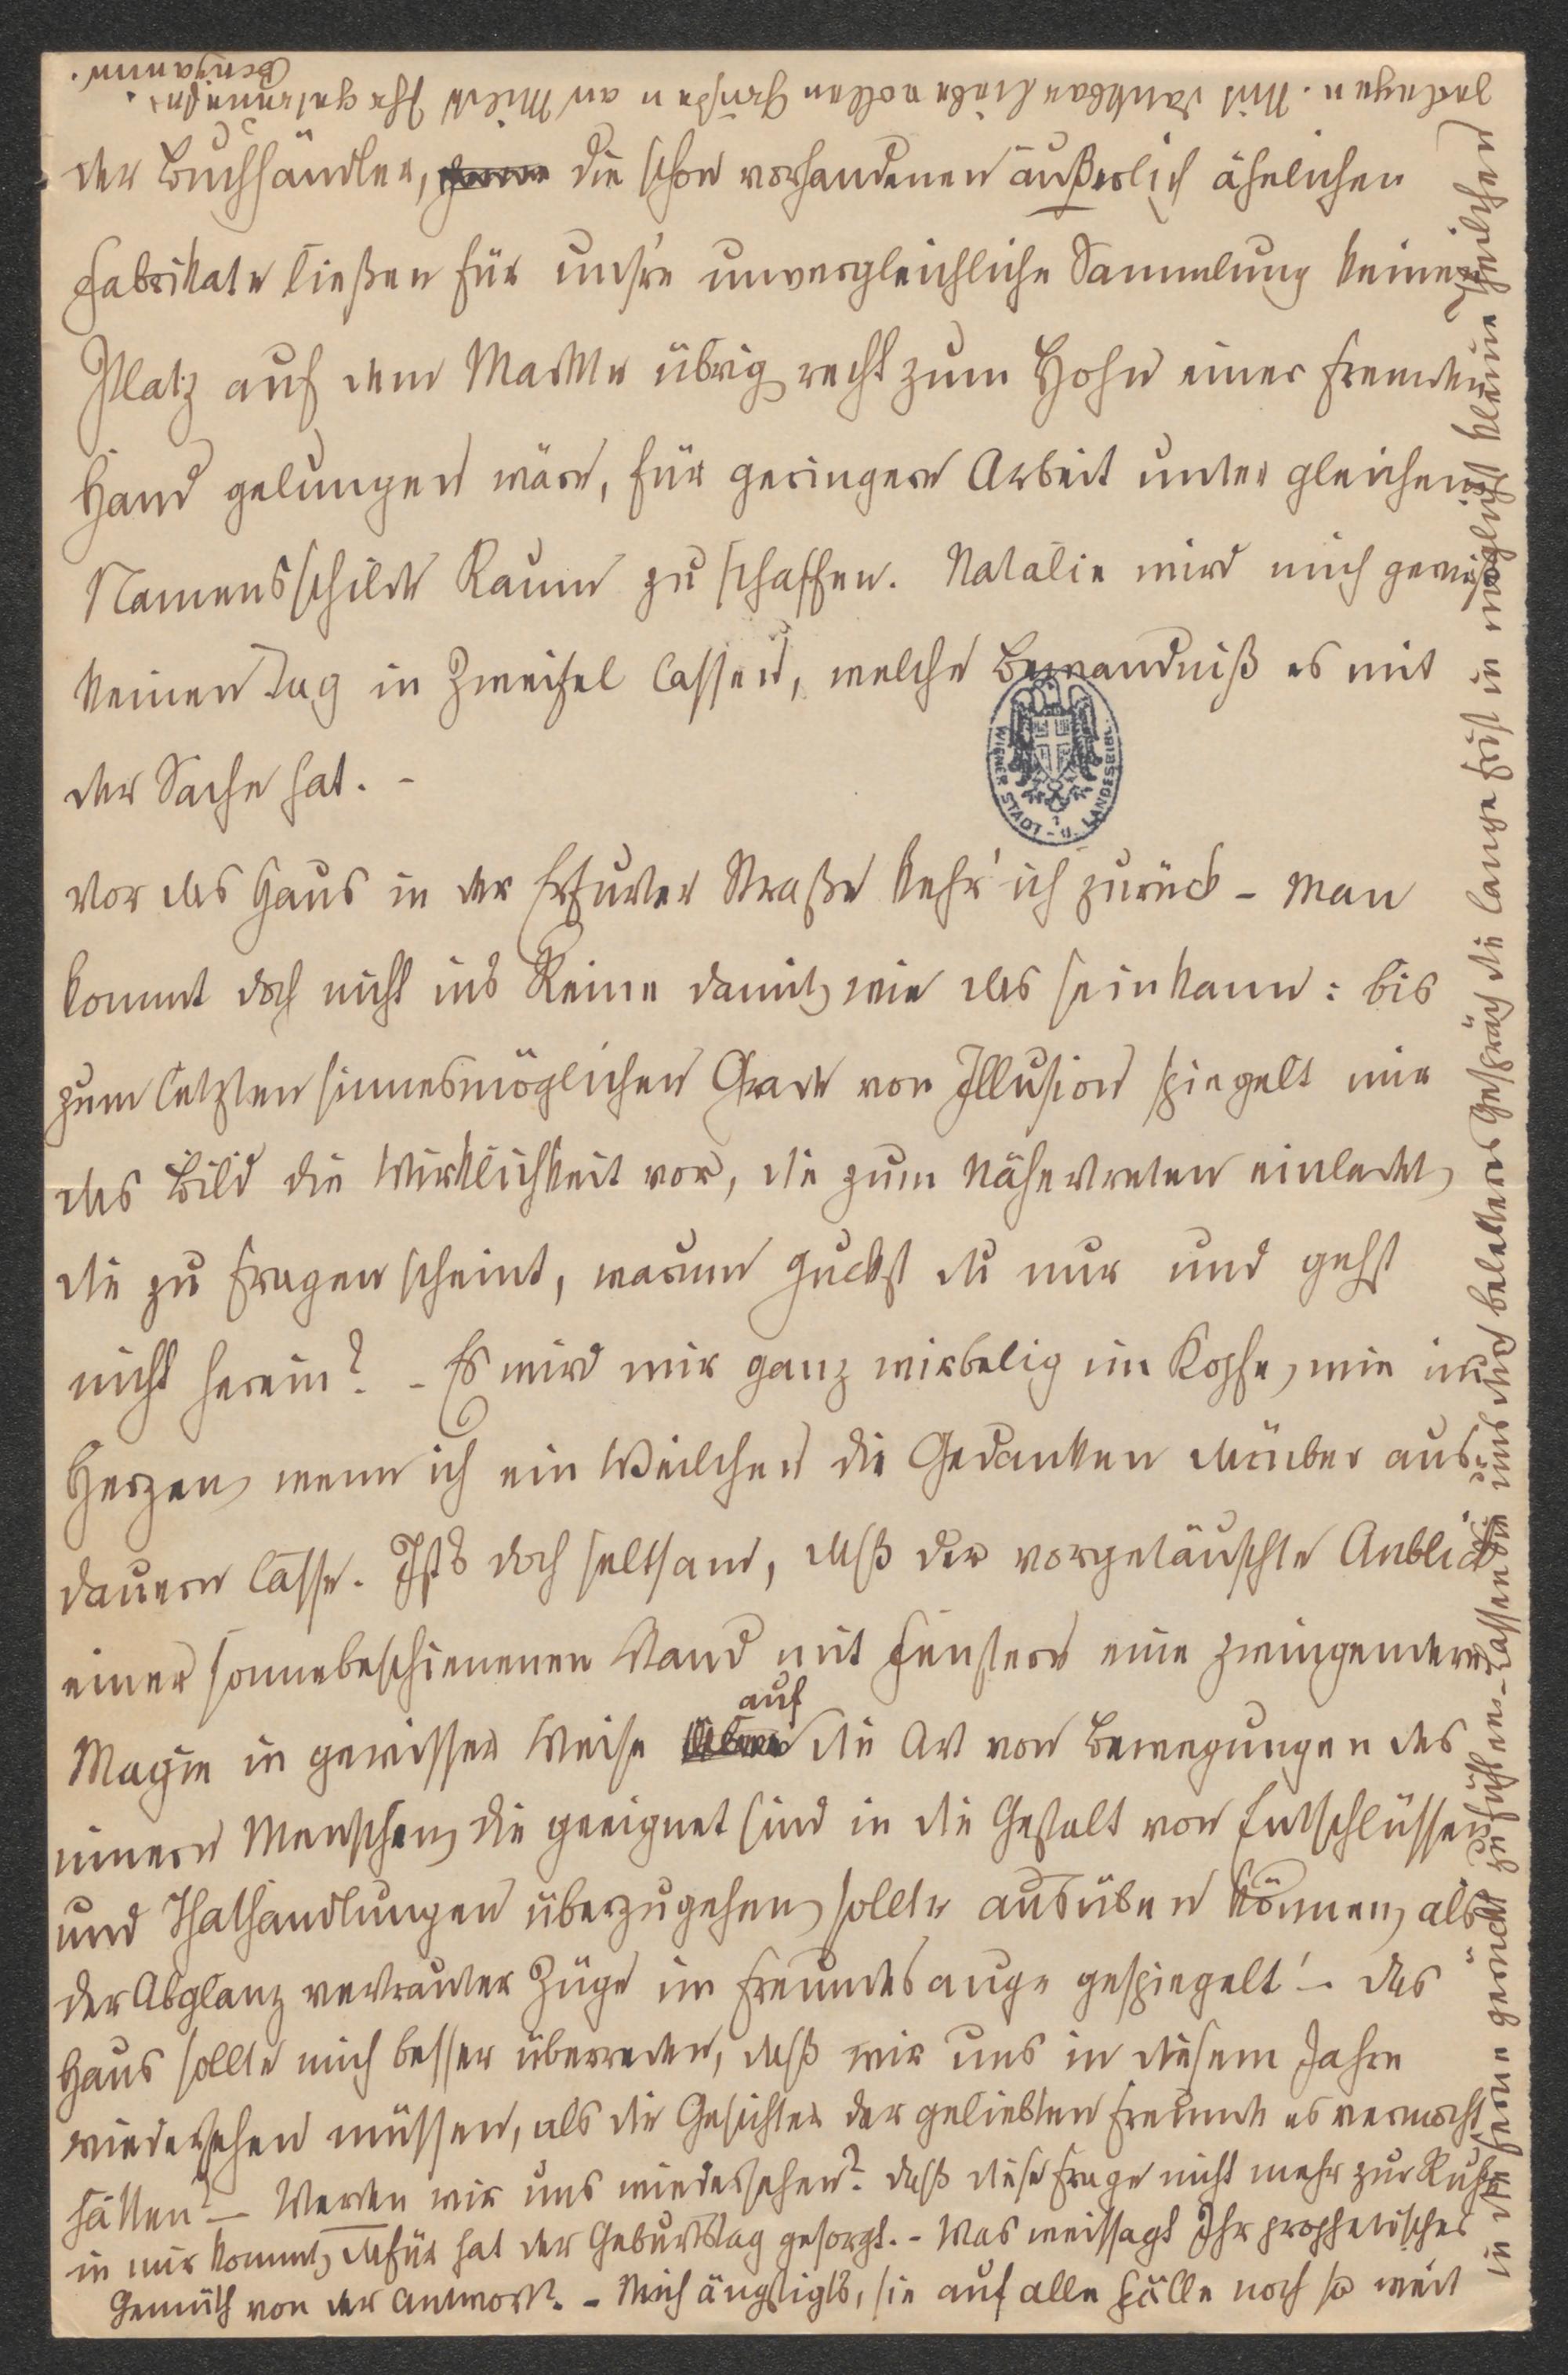 der Buchhändler, die schon vorhandenen äußerlich ähnlichen
Fabrikate ließen für unsre unvergleichliche Sammlung keinen
Platz auf dem Markte übrig recht zum Hohn einer fremden
Hand gelungen wäre, für geringere Arbeit unter gleichem
Namensschilde Raum zu schaffen. Natalie wird mich gewiß
keinen Tag in Zweifel lassen, welche Bewandniß es mit
der Sache hat. –
Vor das Haus in der Erfurter Straße kehr' ich zurück – Man
kommt doch nicht ins Reine damit, wie das sein kann: bis
zum letzten sinnesmöglichen Grade von Illusion spiegelt mir
das Bild die Wirklichkeit vor, die zum Nähertreten einladet,
die zu fragen scheint, warum guckst du nur und gehst
nicht herein? – Es wird mir ganz wirbelig im Kopfe, wie im
Herzen, wenn ich ein Weilchen die Gedanken darüber aus-
dauern lasse. Ists doch seltsam, daß der vorgetäuschte Anblick
einer sonnebeschienenen Wand mit Fenstern eine zwingendere
Magie in gewisser Weise auf die Art von Bewegungen des
innern Menschen, die geeignet sind in die Gestalt von Entschlüssen
und Thathandlungen überzugehen, sollte ausüben können, als
der Abglanz vertrauter Züge im Freundesauge gespiegelt! – Das
Haus sollte mich besser überreden, daß wir uns in diesem Jahre
wiedersehen müssen, als die Gesichter der geliebten Freunde es vermocht
hätten? – Werden wir uns wiedersehen? daß diese Frage nicht mehr zur Ruhe
in mir kommt, dafür hat der Geburtstag gesorgt. – Was weissagt Ihr prophetisches
Gemüth von der Antwort? – Mich ängstigts, sie auf alle Fälle noch so weit
in die Ferne gerückt zu fühlen – Lassen Sie uns durch belebteres Gespräch die lange Frist in möglichst kleine Theilchen
zerlegen. Mit dankbar liebevollen Grüßen an Milde Ihr getreuester
Benjamin.
WIENER STADT - U. LANDESBIBL.